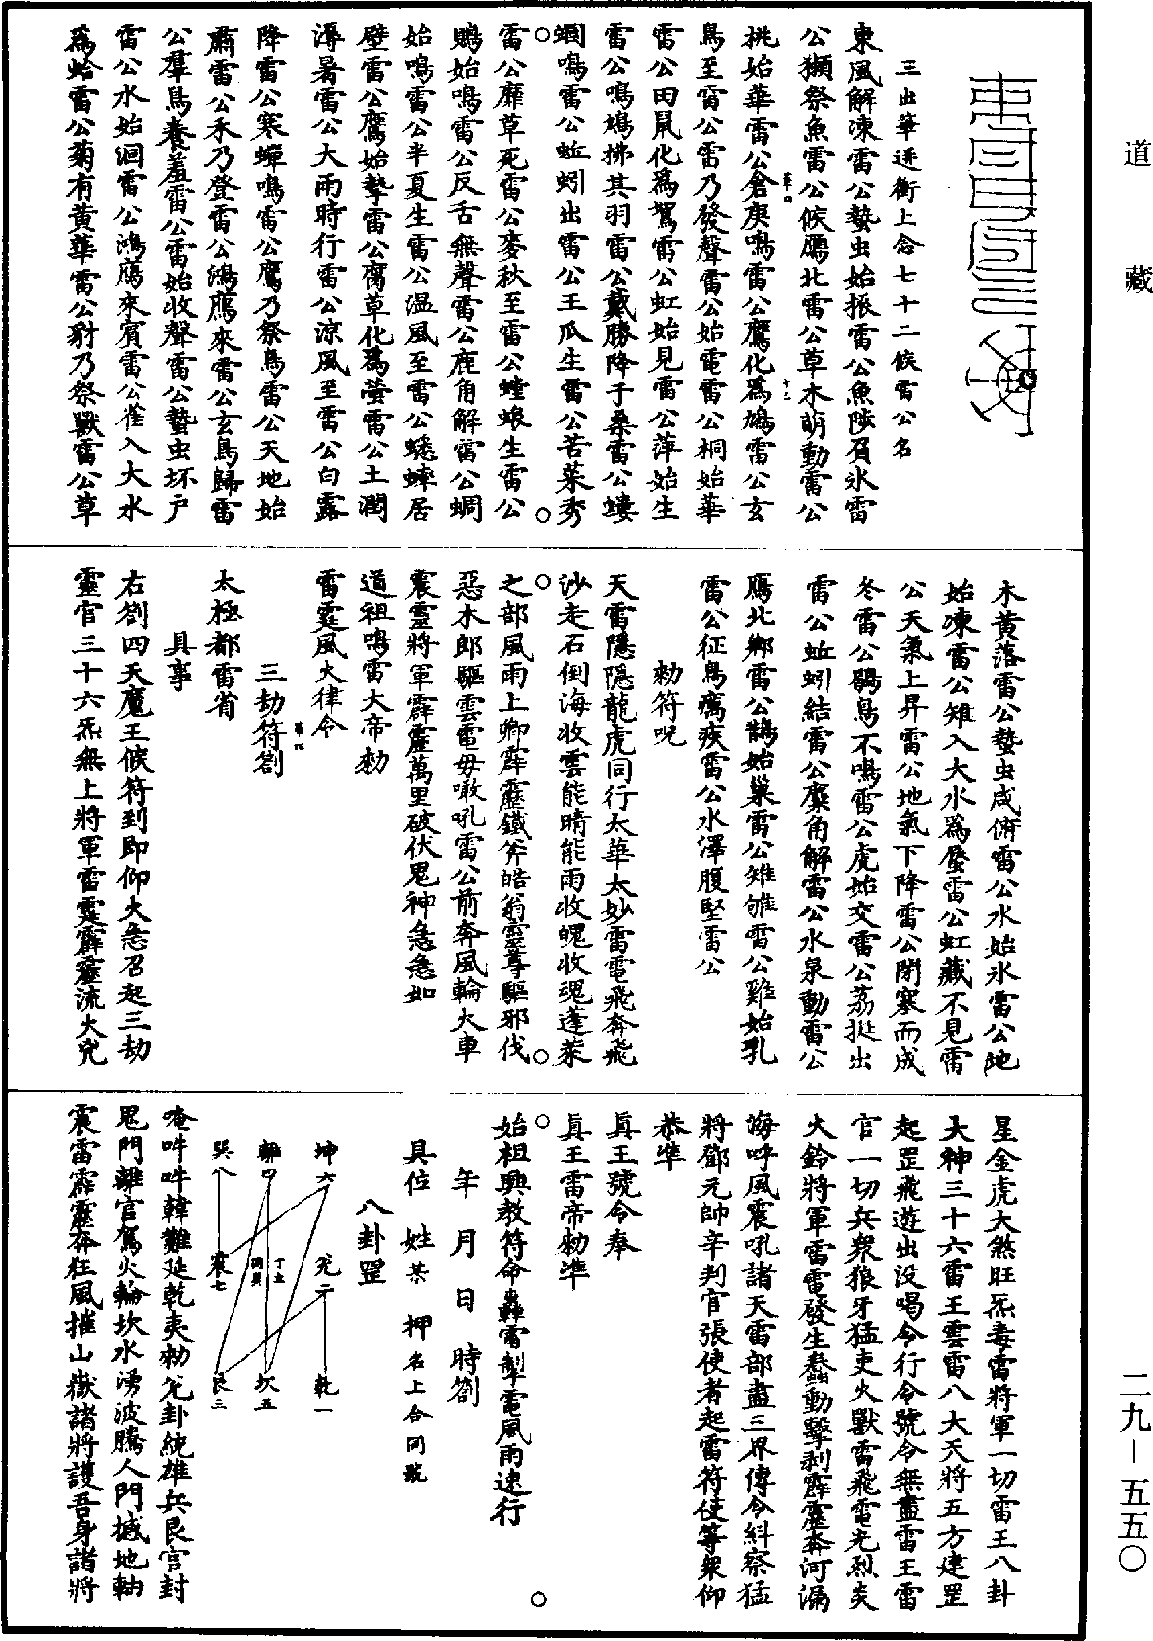 道藏
二九－五五〇
三出筆逆衝上念七十二候雷公名
東風解凍雷公蟄虫始振雷公魚陟負氷雷
公獺祭魚雷公候鴈北雷公草木萌動雷公
桃始華雷公倉庚鳴雷公鷹化爲鳩雷公玄
鳥至雷公雷乃發聲雷公始電雷公桐始華
雷公田鼠化爲鴽雷公虹始見雷公萍始生
雷公鳴鳩拂其羽雷公戴勝降于桑雷公螻
蟈鳴雷公蚯蚓出雷公王瓜生雷公苦菜秀
雷公靡草死雷公麥秋至雷公螳螂生雷公
鵙始鳴雷公反舌無聲雷公鹿角解雷公蜩
始鳴雷公半夏生雷公溫風至雷公蟋蟀居
壁雷公鷹始摯雷公腐草化爲螢雷公土潤
溽暑雷公大雨時行雷公涼風至雷公白露
降雷公寒蟬鳴雷公鷹乃祭鳥雷公天地始
肅雷公禾乃登雷公鴻鴈來雷公玄鳥歸雷
公羣鳥養羞雷公雷始收聲雷公蟄虫坯戶
雷公水始涸雷公鴻鴈來賓雷公雀入大水
爲蛤雷公菊有黃華雷公豺乃祭獸雷公草
木黃落雷公蟄虫咸俯雷公水始氷雷公地
始凍雷公雉入大水爲蜃雷公虹藏不見雷
公天氣上昇雷公地氣下降雷公閉塞而成
冬雷公鶡鳥不鳴雷公虎始交雷公荔挺出
雷公蚯蚓結雷公麋角解雷公水泉動雷公
鴈北鄉雷公鵲始巢雷公雉雊雷公雞始乳
雷公征鳥厲疾雷公水澤腹堅雷公
勑符呪
天雷隱隱龍虎同行太華太妙雷電飛奔飛
沙走石倒海收雲能晴能雨收魄收魂蓬萊
之部風雨上卿霹靂鐵斧皓翁靈尊驅邪伐
惡木郎驅雲電毋噉吼雷公前奔風輪火車
震靈將軍霹靂萬里破伏鬼神急急如
道祖鳴雷大帝勑
雷霆風火律令
三劫符劄
太極都雷省
具事
右劄四天魔王候符到即仰火急召起三劫
靈官三十六炁無上將軍雷霆霹靂流火兇
星金虎大煞旺炁毒雷將軍一切雷王八卦
大神三十六雷王雲雷八大天將五方建罡
起罡飛遊出没喝令行令號令無盡雷王雷
官一切兵衆狼牙猛吏火獸雷飛電光烈炎
火鈴將軍雷電發生蠢動擊剥霹靂奔河漏
海呼風震吼諸天雷部盡三界傳令糾察猛
將鄧元帥辛判官張使者起雷符使等衆仰
恭準
真王號令奉
真王雷帝勑準
始祖興教符命轟雷掣電風雨速行
年　月　日　時劄
具位　姓某　押名上合同號
八卦罡
坤六　離四　巽八
兌二　震七
乾一　坎五　艮三
唵吽吽韓難延乾夷勑兌卦統雄兵艮宫封
鬼門離官駕火輪坎水湧波騰人門撼地軸
震雷霹靂奔狂風摧山嶽諸將護吾身諸將